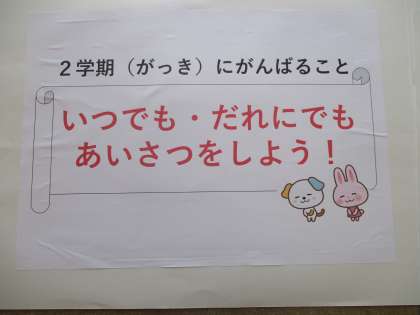 ２学期（がっき）にがんばること
いつでも・だれにでも
あいさつをしよう！